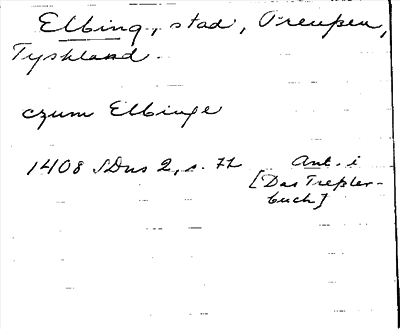 Elbing, stad, Preussen,
Tyskland.
czum Elbinge
1408 SDns 2, s. 72 Ant. i
[Das Tresler-
buch]